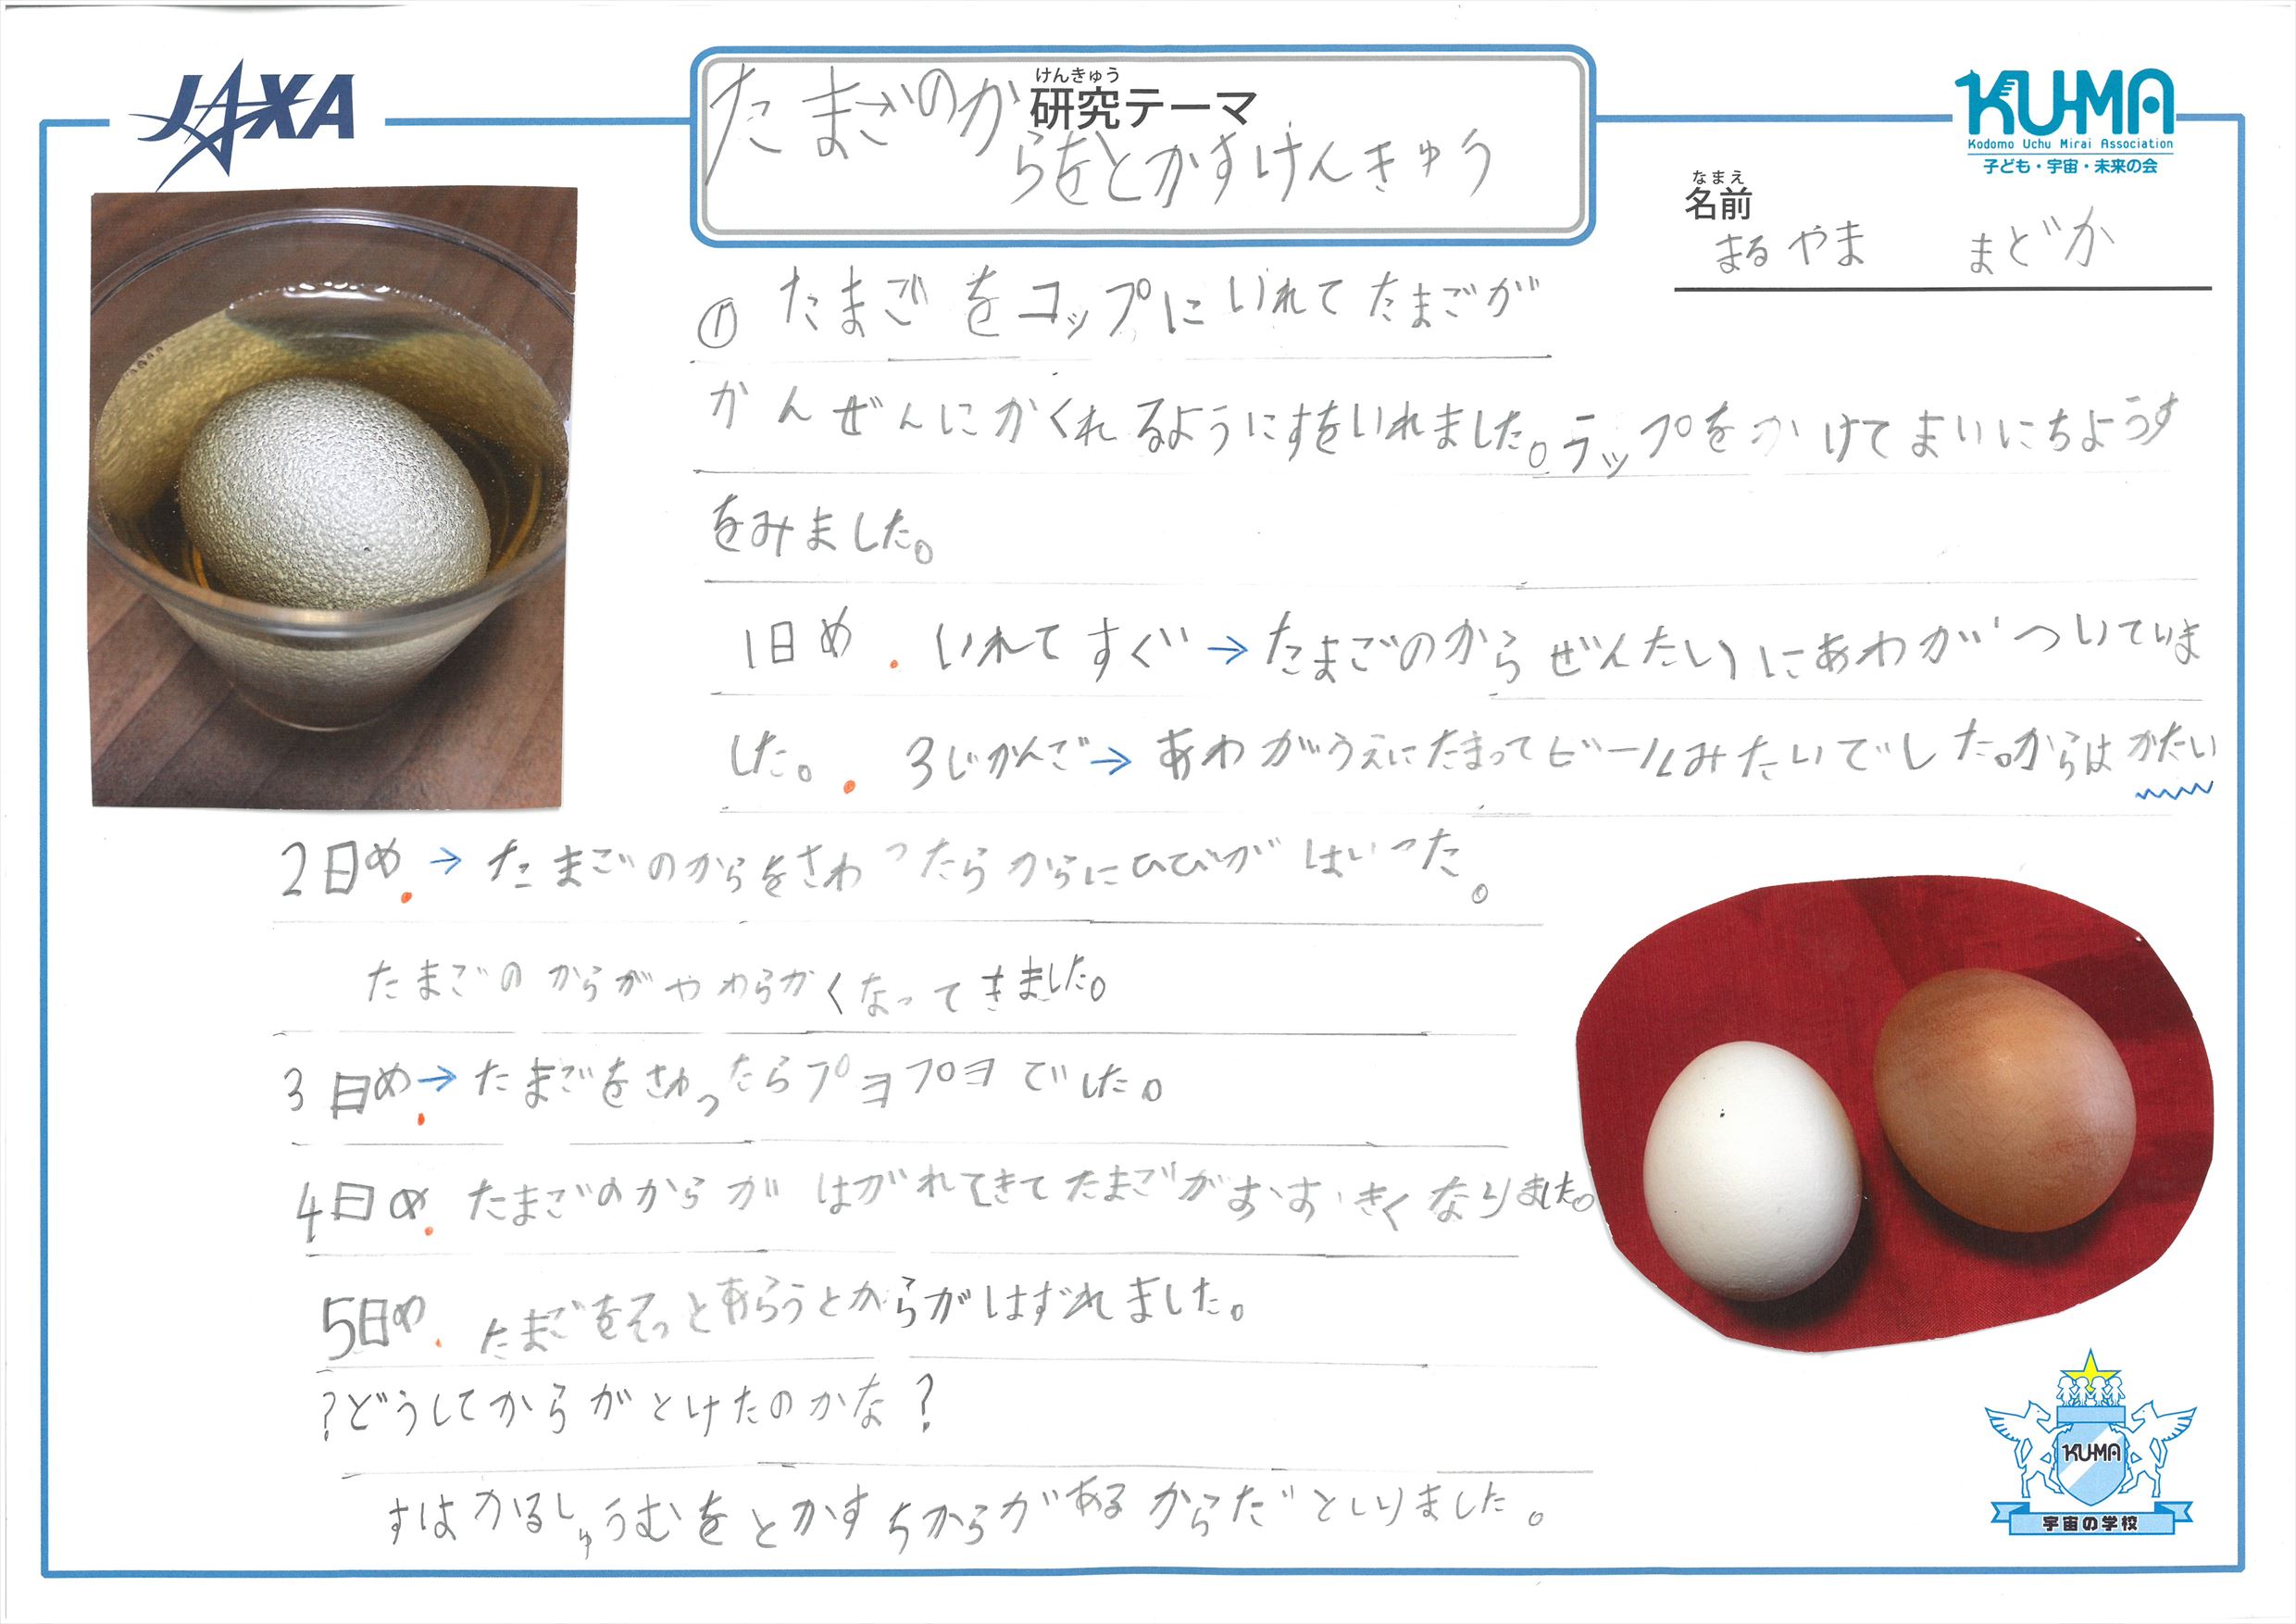 JAXA
けんきゅう
研究テーマ
たまごのか
らをとかすけんきゅう
KU-MA
Kodomo Uchu Mirai Association
子ども・宇宙・未来の会
なまえ
名前
まるやま まどか
① たまごをコップにいれてたまごが
かんぜんにかくれるようにすをいれました。ラップをかけてまいにちようす
をみました。
1日め . いれてすぐ→たまごのからぜんたいにあわがついていま
した。. 3じかんご→あわがうえにたまってビールみたいでした。からはかたい
2日め. → たまごのからをさわったらからにひびがはいった。
たまごのからがやわらかくなってきました。
3日め.→たまごをさわったらプヨプヨでした。
4日め. たまごのからがはがれてきてたまごがおおきくなりました。
5日め. たまごをそっとあらうとからがはずれました。
?どうしてからがとけたのかな?
すはかるしゅうむをとかすちからがあるからだとしりました。
KU-MA
宇宙の学校